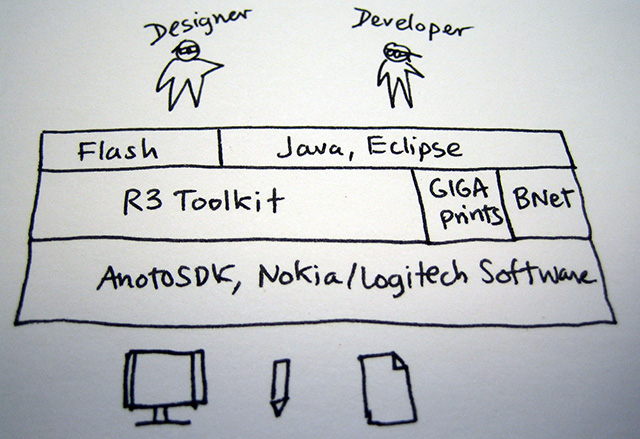 Designer
Developer
Flash
Java, Eclipse
R3 Toolkit
GIGA
prints
BNet
AnotoSDK, Nokia/Logitech Software